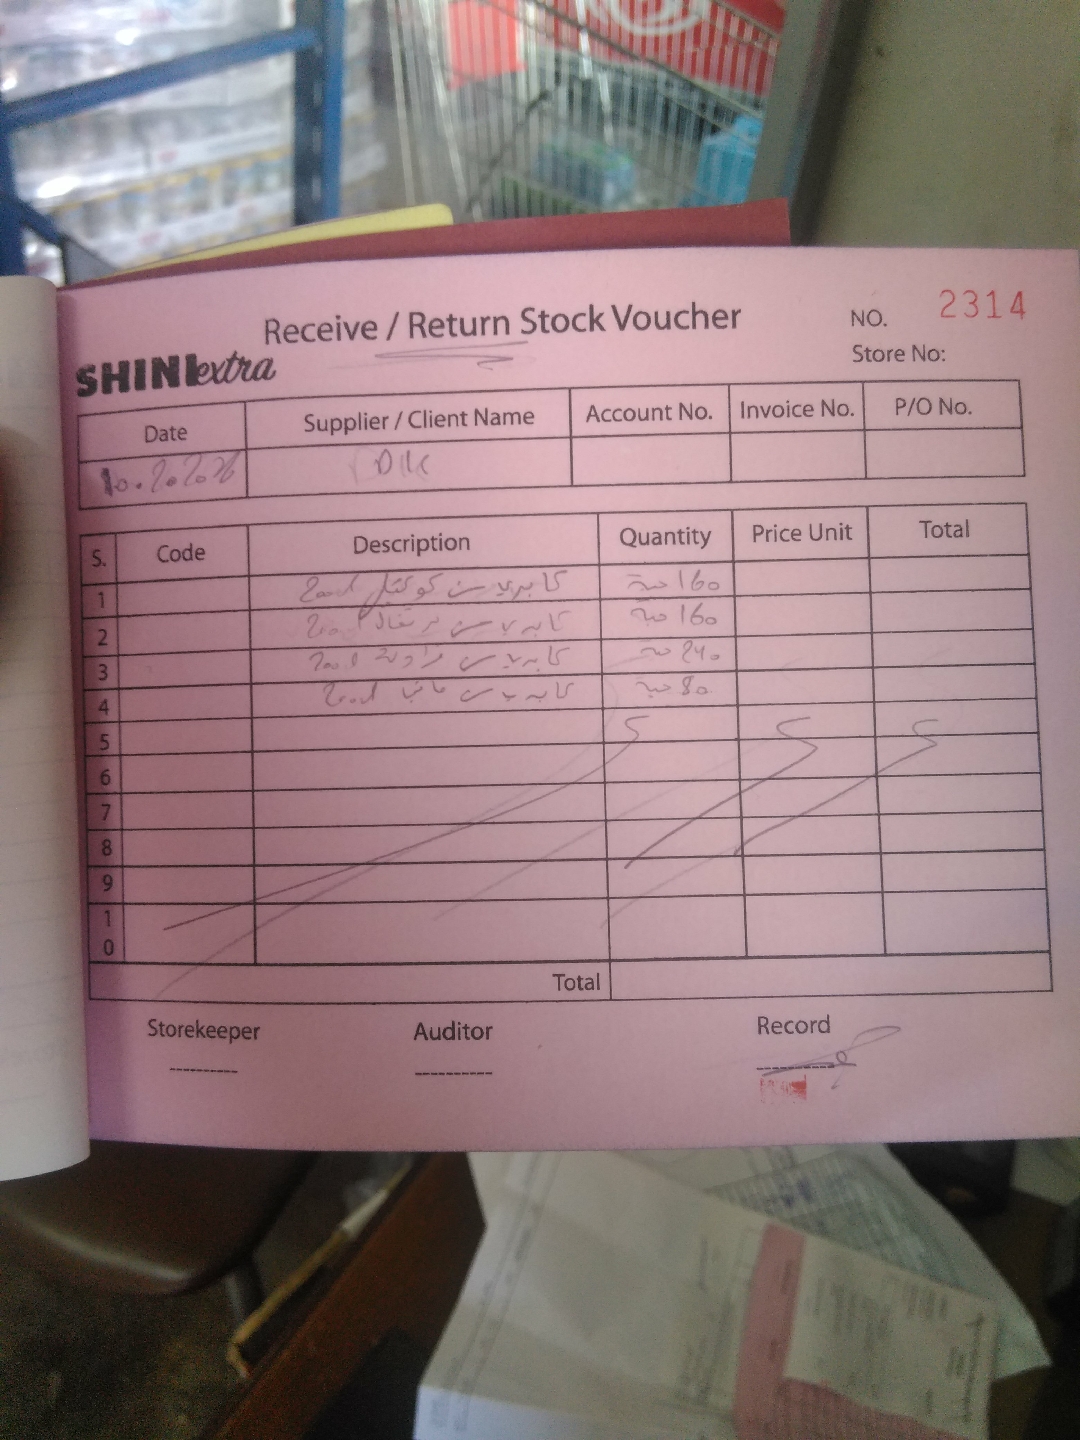 Receive / Return Stock Voucher
NO. 2314
Store No:
SHINI extra
Date Supplier / Client Name Account No. Invoice No. P/O No.
S. Code Description Quantity Price Unit Total
1 كابريس كوكتيل 160 حبة
2 كابريس برتقال 160 حبة
3 كابريس 240 حبة
4 كابريس 80 حبة
5
6
7
8
9
10
Total
Storekeeper Auditor Record